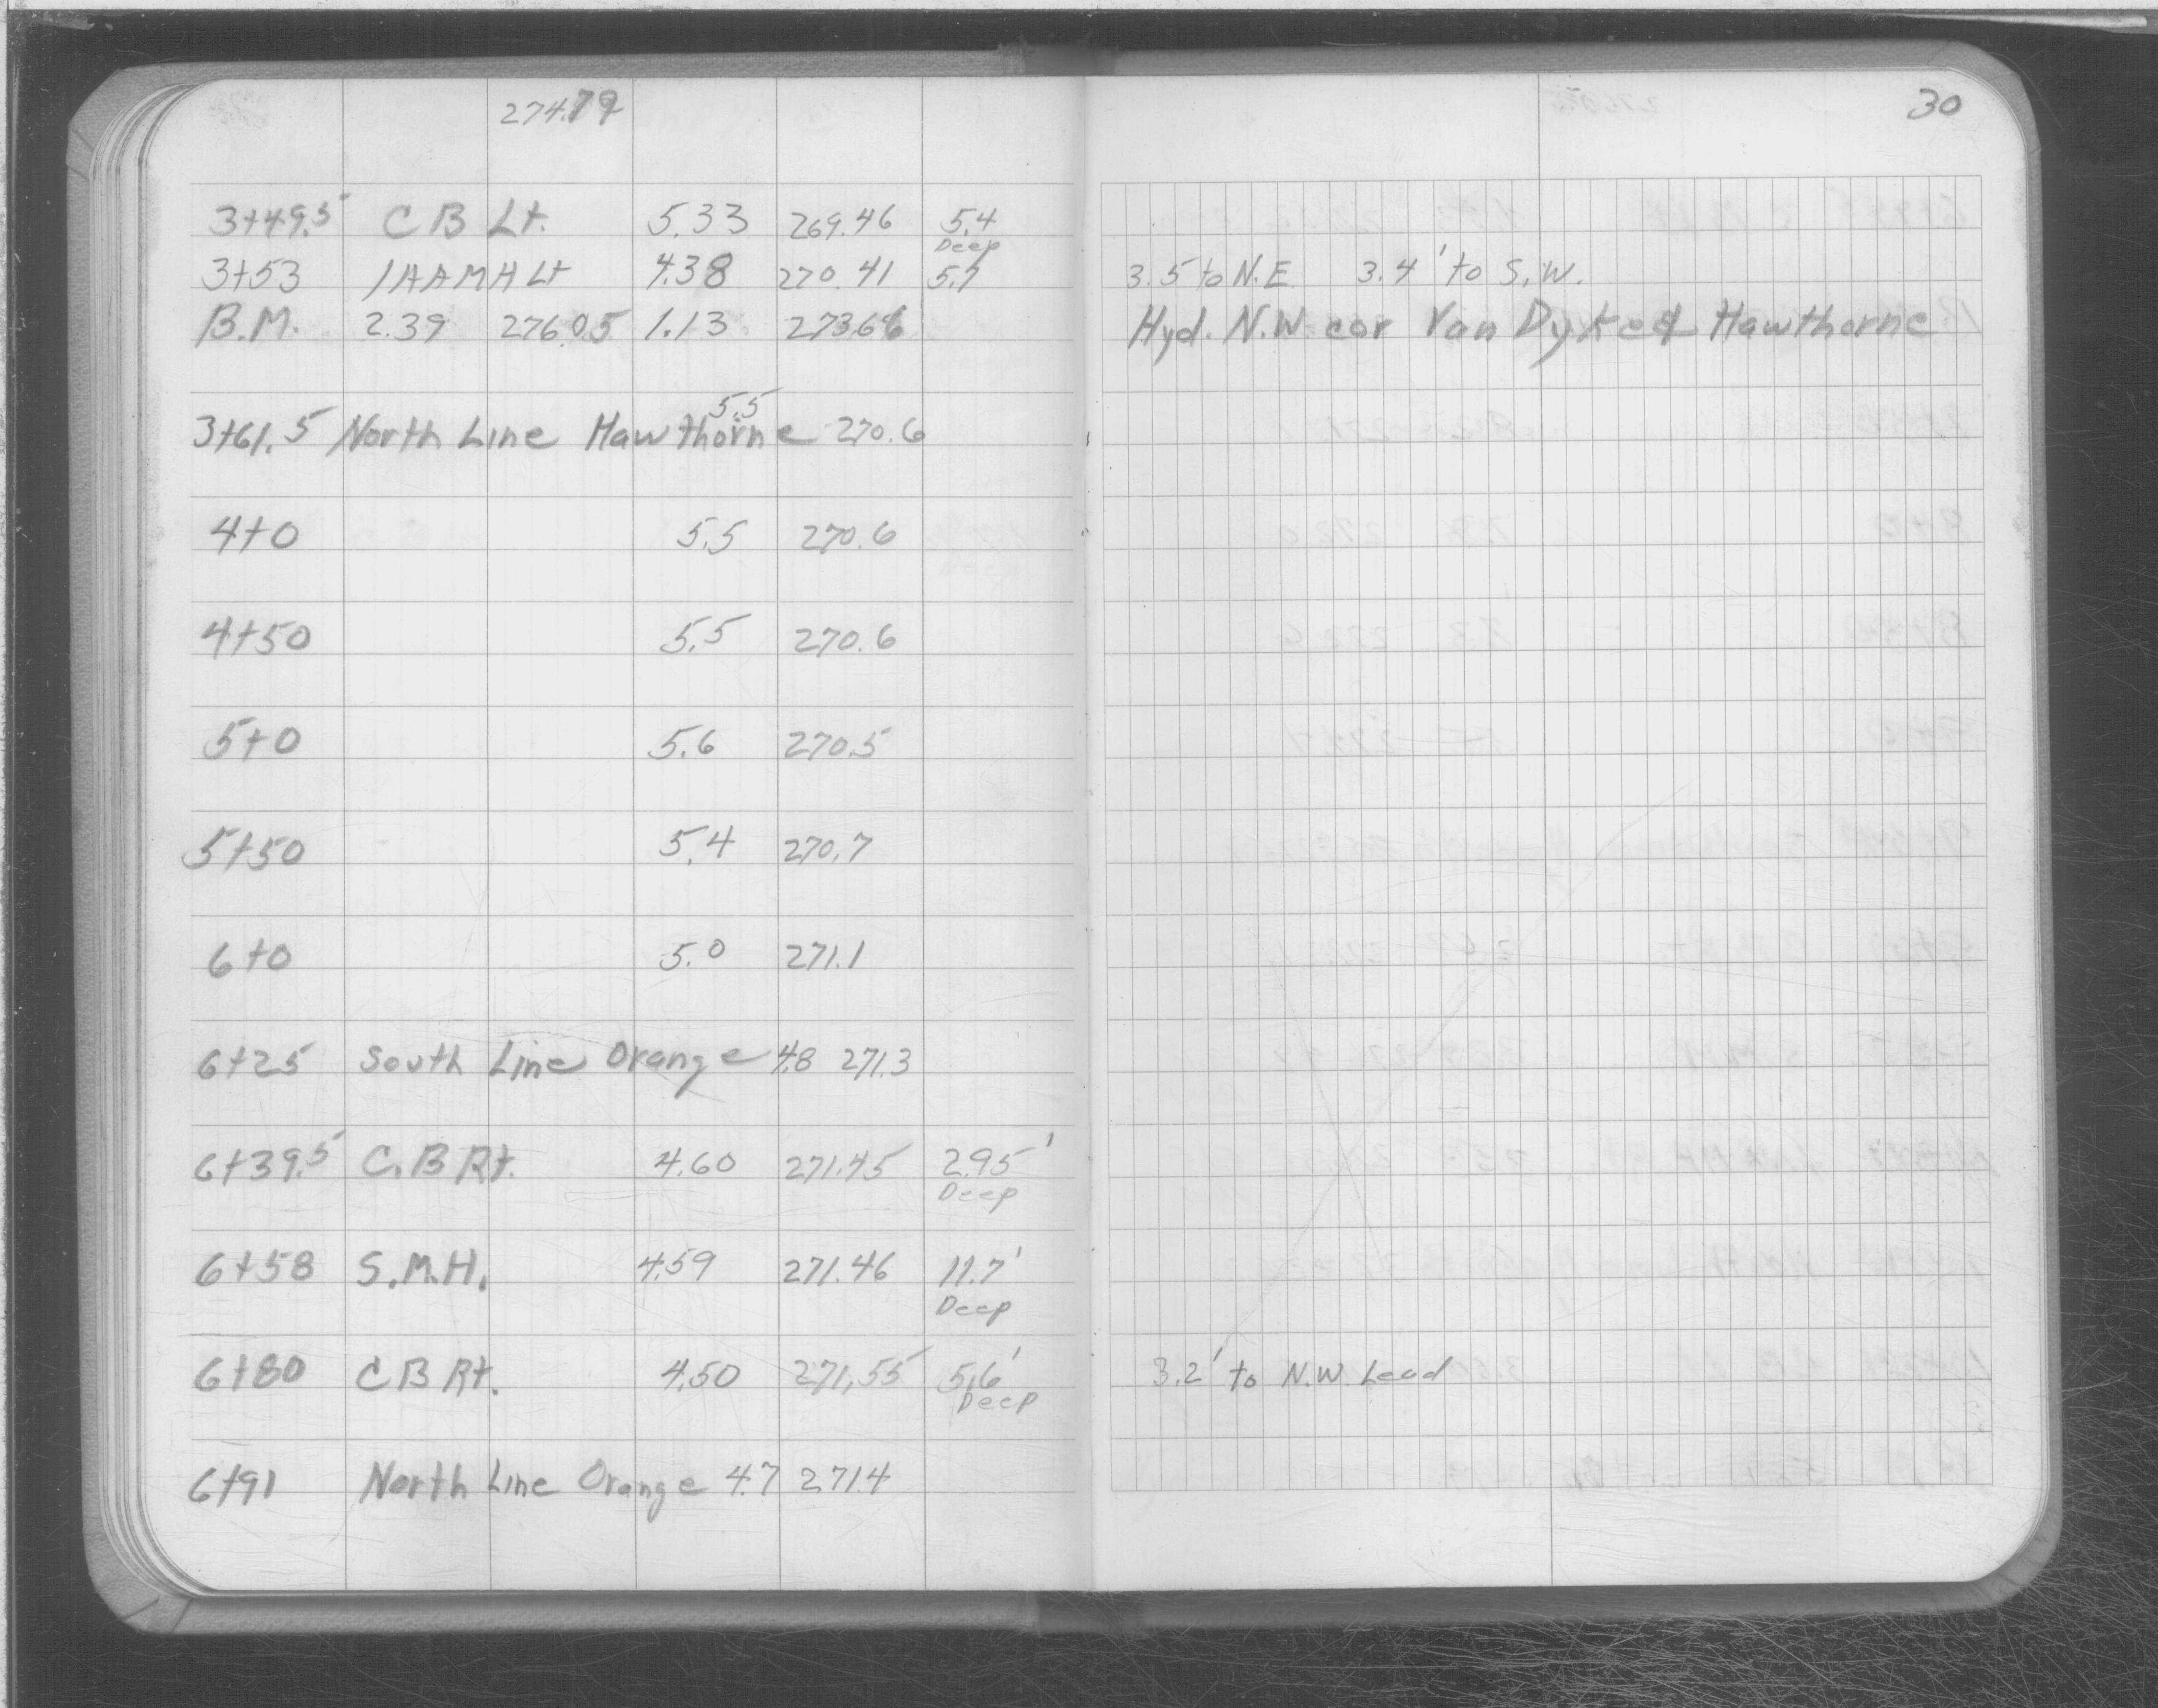 274.79
30
3+49.5 C B Lt. 5.33 269.46 5.4
Deep
3+53 1HAMH Lt 4.38 270.41 5.7 3.5 to N.E. 3.4' to S.W.
B.M. 2.39 276.05 1.13 273.66 Hyd. N.W. cor Van Dyke & Hawthorne
5.5
3+61.5 North Line Hawthorne 270.6
4+0 5.5 270.6
4+50 5.5 270.6
5+0 5.6 270.5
5+50 5.4 270.7
6+0 5.0 271.1
6+25 South Line Orange 4.8 271.3
6+39.5 C.B Rt. 4.60 271.45 2.95'
Deep
6+58 S.M.H. 4.59 271.46 11.7'
Deep
6+80 C B Rt. 4.50 271.55 5.6' 3.2' to N.W. Lead
Deep
6+91 North Line Orange 4.7 271.4